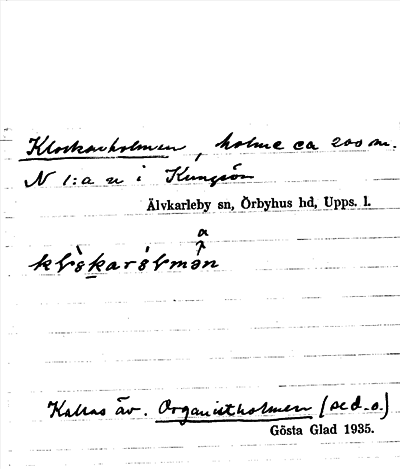 Klockarholmen, holme ca 200 m.
N 1:a n i Kungsön
Älvkarleby sn, Örbyhus hd, Upps. l.
a
Kallas äv. Organistholmen (se d. o.)
Gösta Glad 1935.